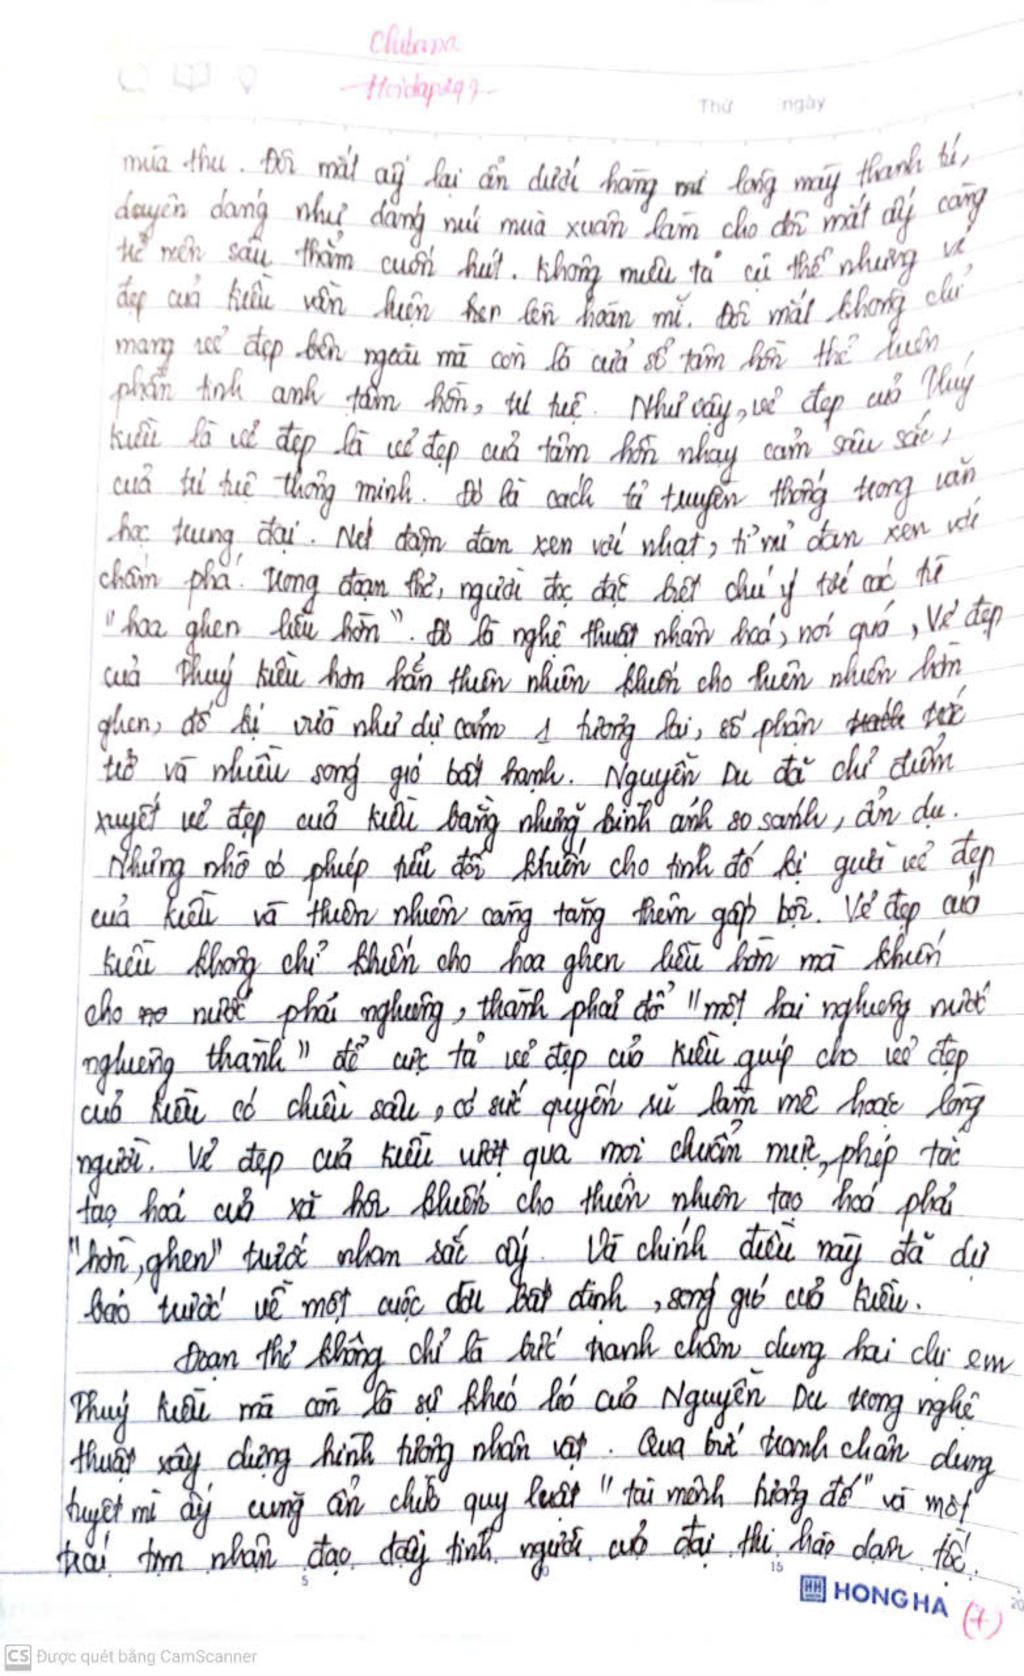 Chibana
Hoidap247
Thứ ngày
mùa thu. Đôi mắt ấy lại ẩn dưới hàng mi lông mày thanh tú,
duyên dáng như dáng núi mùa xuân làm cho đôi mắt ấy càng
trở nên sâu thẳm cuốn hút. Không miêu tả cụ thể nhưng vẻ
đẹp của Kiều vẫn hiện hẹn lên hoàn mĩ. Đôi mắt không chỉ
mang vẻ đẹp bên ngoài mà còn là cửa sổ tâm hồn thể hiện
phần tinh anh tâm hồn, trí tuệ. Như vậy, vẻ đẹp của Thuý
Kiều là vẻ đẹp là vẻ đẹp của tâm hồn nhạy cảm sâu sắc,
của trí tuệ thông minh. Đó là cách tả truyền thống trong văn
học trung đại. Nét đậm đan xen với nhạt, tỉ mỉ đan xen với
chấm phá. Trong đoạn thơ, người đọc đặc biệt chú ý tới các từ
"hoa ghen liễu hờn". Đó là nghệ thuật nhân hoá, nói quá, Vẻ đẹp
của Thuý Kiều hơn hẳn thiên nhiên khiến cho thiên nhiên hờn
ghen, đố kị vừa như dự cảm 1 tương lai, số phận trắc
trở và nhiều sóng gió bất hạnh. Nguyễn Du đã chỉ điểm
xuyết vẻ đẹp của Kiều bằng những hình ảnh so sánh, ẩn dụ.
Nhưng nhờ có phép tiểu đối khiến cho tính đố kị giưa vẻ đẹp
của Kiều và thiên nhiên càng tăng thêm gấp bội. Vẻ đẹp của
Kiều không chỉ khiến cho hoa ghen liễu hờn mà khiến
cho nước phải nghiêng, thành phải đổ "một hai nghiêng nước
nghiêng thành" để cực tả vẻ đẹp của Kiều giúp cho vẻ đẹp
của Kiều có chiều sâu, có sức quyến rũ làm mê hoặc lòng
người. Vẻ đẹp của Kiều vượt qua mọi chuẩn mực, phép tắc
tạo hoá của xã hội khiến cho thiên nhiên tạo hoá phải
"hờn, ghen" trước nhan sắc ấy. Và chính điều này đã dự
báo trước về một cuộc đời bất định, sóng gió của Kiều.
Đoạn thơ không chỉ là bức tranh chân dung hai chị em
Thuý Kiều mà còn là sự khéo léo của Nguyễn Du trong nghệ
thuật xây dựng hình tượng nhân vật. Qua bức tranh chân dung
tuyệt mĩ ấy cũng ẩn chứa quy luật "tài mệnh tương đố" và một
trái tim nhân đạo đầy tình người của đại thi hào dân tộc.
5 10 15 20
HONG HA
(7)
CS Được quét bằng CamScanner